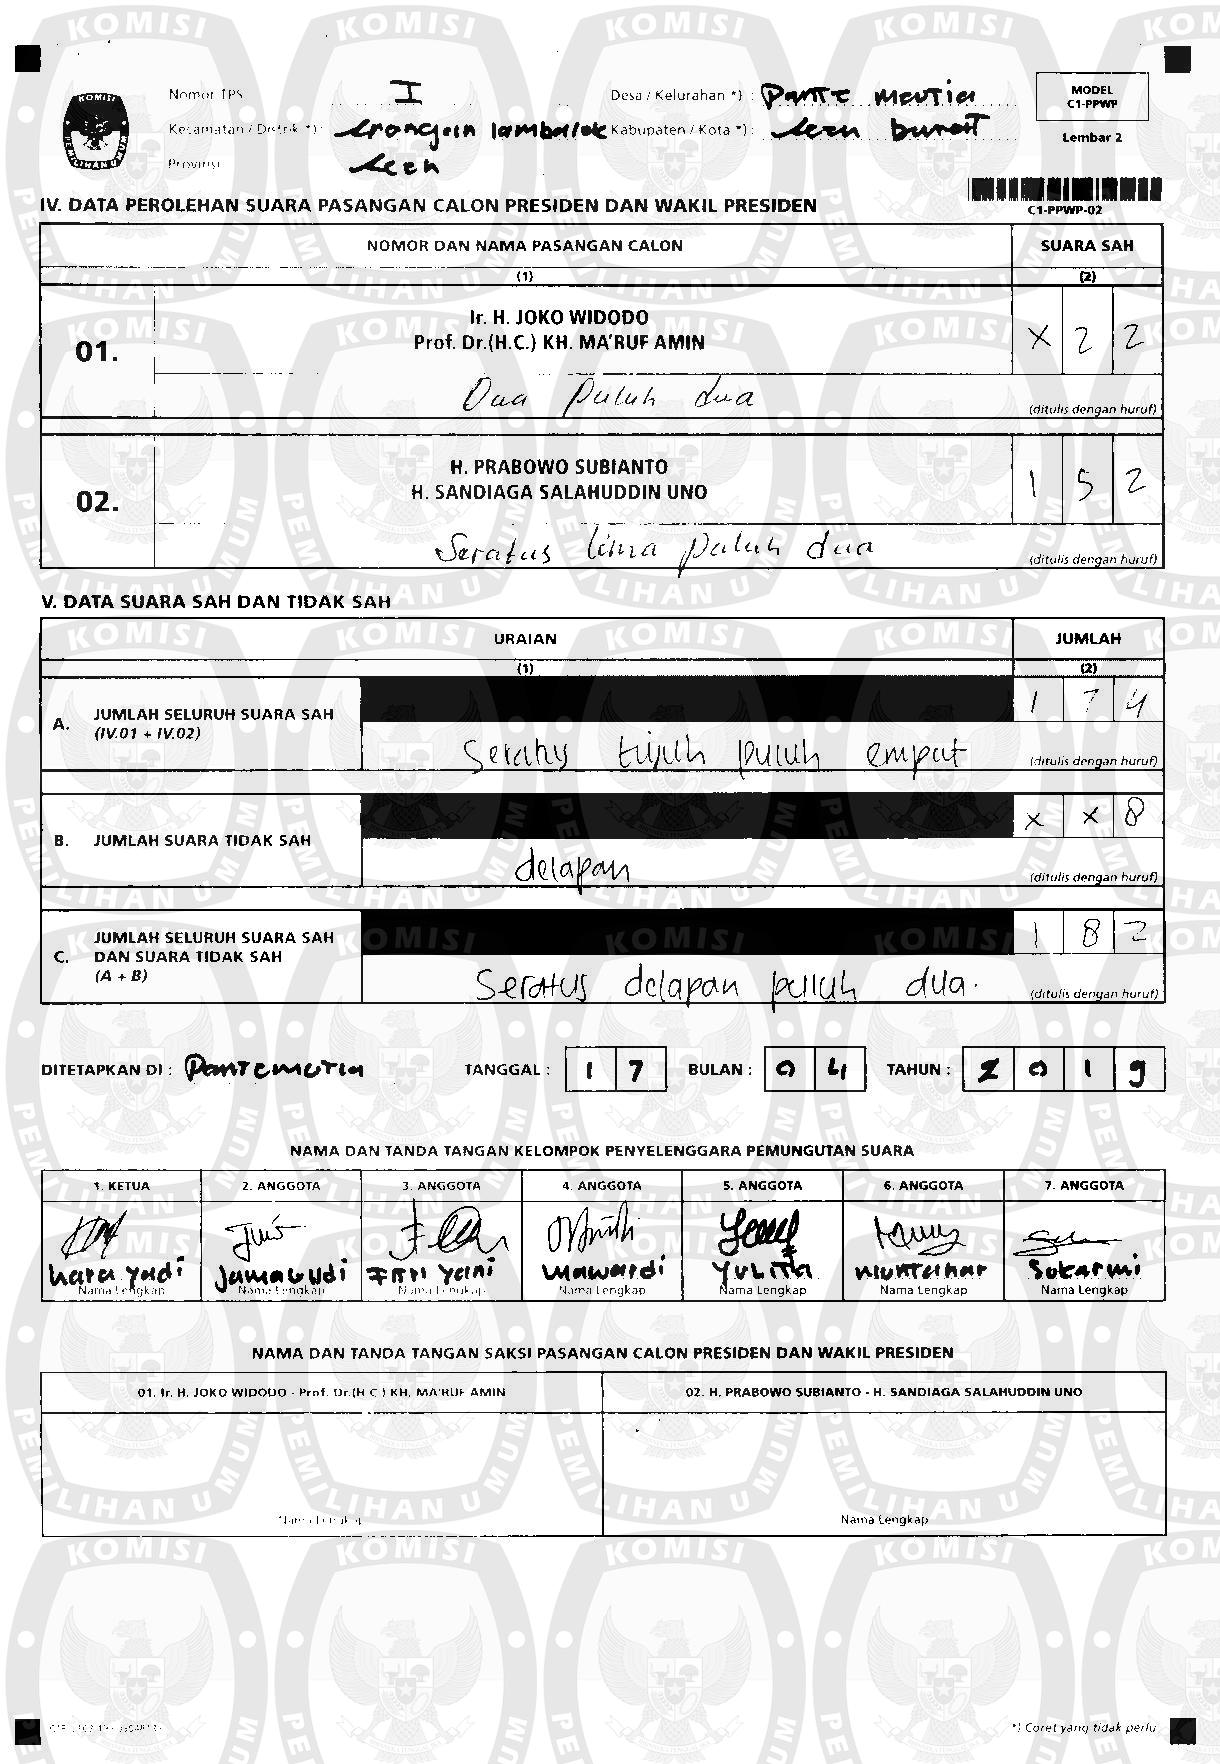 Nomor TPS I Desa / Kelurahan *) : MODEL
C1-PPWP
Kecamatan / Distrik *) : Kabupaten / Kota *) :
Lembar 2
Provinsi
IV. DATA PEROLEHAN SUARA PASANGAN CALON PRESIDEN DAN WAKIL PRESIDEN
C1-PPWP-02
NOMOR DAN NAMA PASANGAN CALON SUARA SAH
(1) (2)
Ir. H. JOKO WIDODO
01. Prof. Dr.(H.C.) KH. MA'RUF AMIN X 2 2
Dua puluh dua (ditulis dengan huruf)
H. PRABOWO SUBIANTO
02. H. SANDIAGA SALAHUDDIN UNO 1 5 2
Seratus lima puluh dua (ditulis dengan huruf)
V. DATA SUARA SAH DAN TIDAK SAH
URAIAN JUMLAH
(1) (2)
A. JUMLAH SELURUH SUARA SAH 1 7 4
(IV.01 + IV.02)
tujuh puluh empat (ditulis dengan huruf)
B. JUMLAH SUARA TIDAK SAH X X 8
delapan (ditulis dengan huruf)
C. JUMLAH SELURUH SUARA SAH 1 8 2
DAN SUARA TIDAK SAH
(A + B)
Seratus delapan puluh dua. (ditulis dengan huruf)
DITETAPKAN DI : TANGGAL : 1 7 BULAN : 0 4 TAHUN : 2 0 1 9
NAMA DAN TANDA TANGAN KELOMPOK PENYELENGGARA PEMUNGUTAN SUARA
1. KETUA 2. ANGGOTA 3. ANGGOTA 4. ANGGOTA 5. ANGGOTA 6. ANGGOTA 7. ANGGOTA
yadi Fitri yani Mawardi YULITA Sukarmi
Nama Lengkap Nama Lengkap Nama Lengkap Nama Lengkap Nama Lengkap Nama Lengkap Nama Lengkap
NAMA DAN TANDA TANGAN SAKSI PASANGAN CALON PRESIDEN DAN WAKIL PRESIDEN
01. Ir. H. JOKO WIDODO - Prof. Dr.(H.C.) KH. MA'RUF AMIN 02. H. PRABOWO SUBIANTO - H. SANDIAGA SALAHUDDIN UNO
Nama Lengkap Nama Lengkap
*) Coret yang tidak perlu